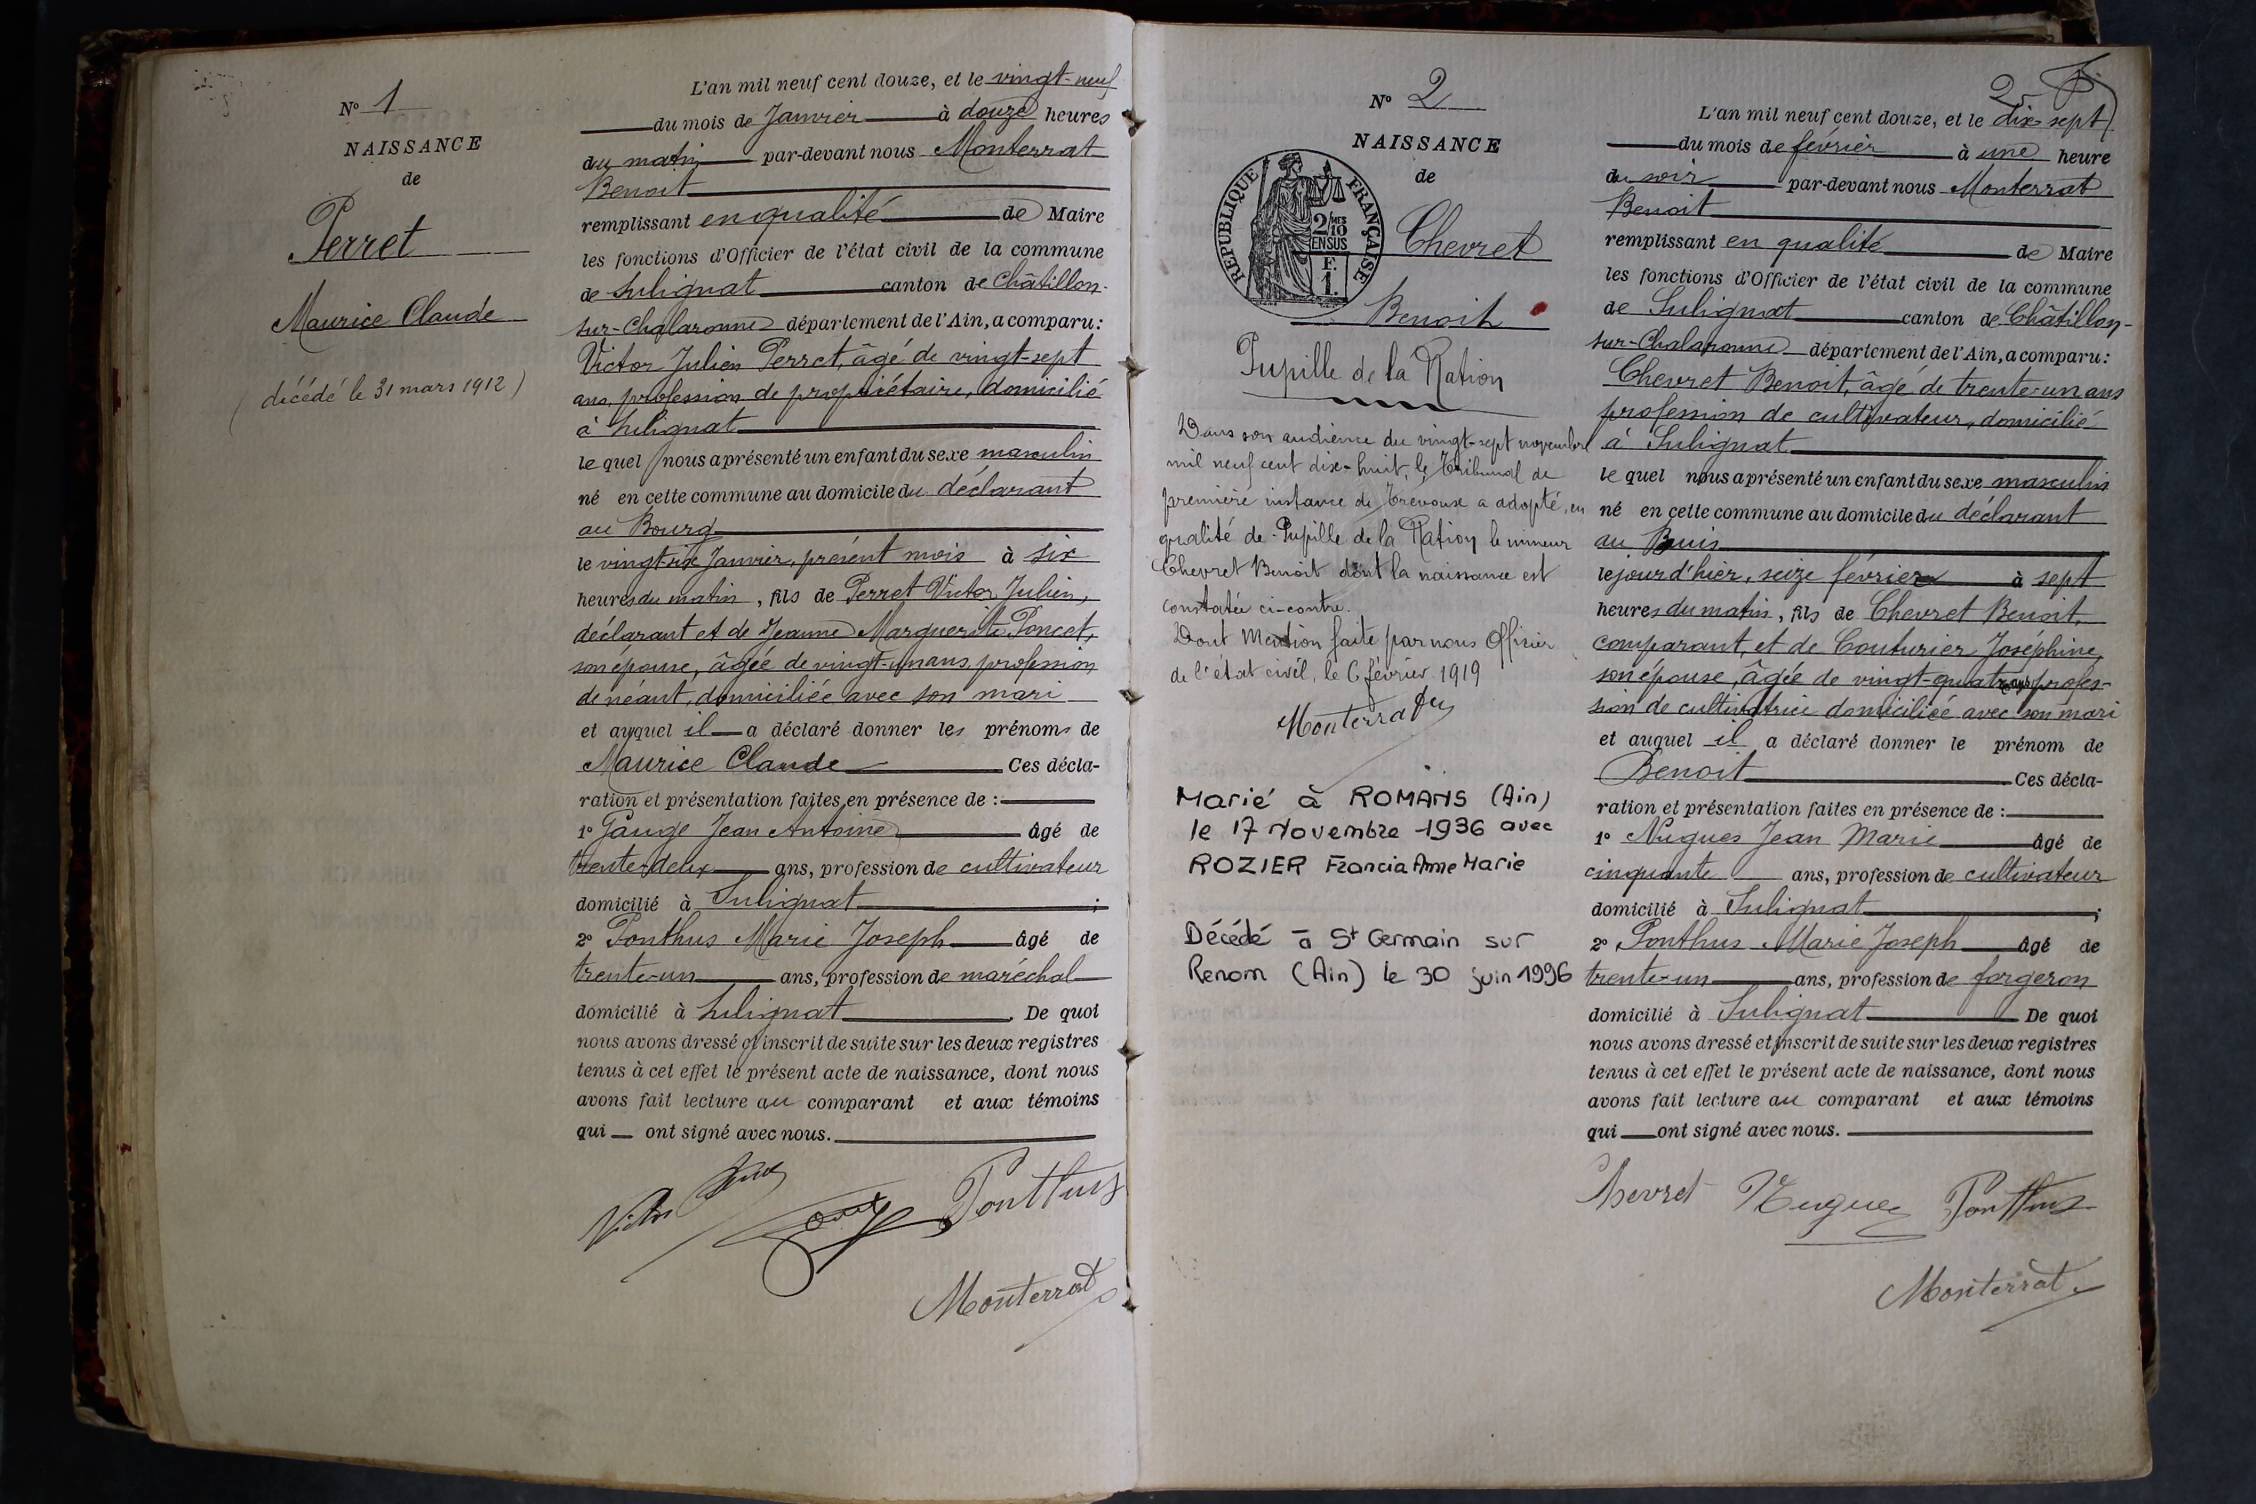 N° 1
NAISSANCE
de
Perret
Maurice Claude
(décédé le 31 mars 1912)
L'an mil neuf cent douze, et le vingt-neuf
du mois de Janvier à douze heures
du matin par-devant nous Monterrat
Benoit
remplissant en qualité de Maire
les fonctions d'Officier de l'état civil de la commune
de Sulignat canton de Châtillon-
sur-Chalaronne département de l'Ain, a comparu :
Victor Julien Perret, âgé de vingt-sept
ans, profession de propriétaire, domicilié
à Sulignat
le quel nous a présenté un enfant du sexe masculin
né en cette commune au domicile du déclarant
au Bourg
le vingt-six Janvier, présent mois à six
heures du matin, fils de Perret Victor Julien,
déclarant et de Jeanne Marguerite Poncet,
son épouse, âgée de vingt-un ans, profession
de néant, domiciliée avec son mari
et auquel il a déclaré donner les prénoms de
Maurice Claude Ces décla-
ration et présentation faites en présence de :
1° Gauge Jean Antoine âgé de
trente-deux ans, profession de cultivateur
domicilié à Sulignat ;
2° Ponthus Marie Joseph âgé de
trente-un ans, profession de maréchal
domicilié à Sulignat . De quoi
nous avons dressé et inscrit de suite sur les deux registres
tenus à cet effet le présent acte de naissance, dont nous
avons fait lecture au comparant et aux témoins
qui ont signé avec nous.
Victor Ponthus
Monterrat
2
N° 2
NAISSANCE
de
RÉPUBLIQUE FRANÇAISE
2/10 MES
EN SUS
F.
1.
Chevret
Benoit
Pupille de la Nation
Dans son audience du vingt-sept novembre
mil neuf cent dix-huit, le Tribunal de
première instance de Trévoux a adopté, en
qualité de Pupille de la Nation le mineur
Chevret Benoit dont la naissance est
constatée ci-contre.
Dont Mention faite par nous Officier
de l'état civil, le 6 février 1919
Monterrat
Marié à ROMANS (Ain)
le 17 Novembre 1936 avec
ROZIER Francia Anne Marie
Décédé à St Germain sur
Renom (Ain) le 30 juin 1996
L'an mil neuf cent douze, et le dix-sept
du mois de février à une heure
du soir par-devant nous Monterrat
Benoit
remplissant en qualité de Maire
les fonctions d'Officier de l'état civil de la commune
de Sulignat canton de Châtillon-
sur-Chalaronne département de l'Ain, a comparu :
Chevret Benoit, âgé de trente-un ans
profession de cultivateur, domicilié
à Sulignat
le quel nous a présenté un enfant du sexe masculin
né en cette commune au domicile du déclarant
au Buis
le jour d'hier, seize février à sept
heures du matin, fils de Chevret Benoit,
comparant, et de Couturier Joséphine,
son épouse, âgée de vingt-quatre ans profes-
sion de cultivatrice domiciliée avec son mari
et auquel il a déclaré donner le prénom de
Benoit Ces décla-
ration et présentation faites en présence de :
1° Nugues Jean Marie âgé de
cinquante ans, profession de cultivateur
domicilié à Sulignat ;
2° Ponthus Marie Joseph âgé de
trente-un ans, profession de forgeron
domicilié à Sulignat De quoi
nous avons dressé et inscrit de suite sur les deux registres
tenus à cet effet le présent acte de naissance, dont nous
avons fait lecture au comparant et aux témoins
qui ont signé avec nous.
Chevret Nugues Ponthus
Monterrat